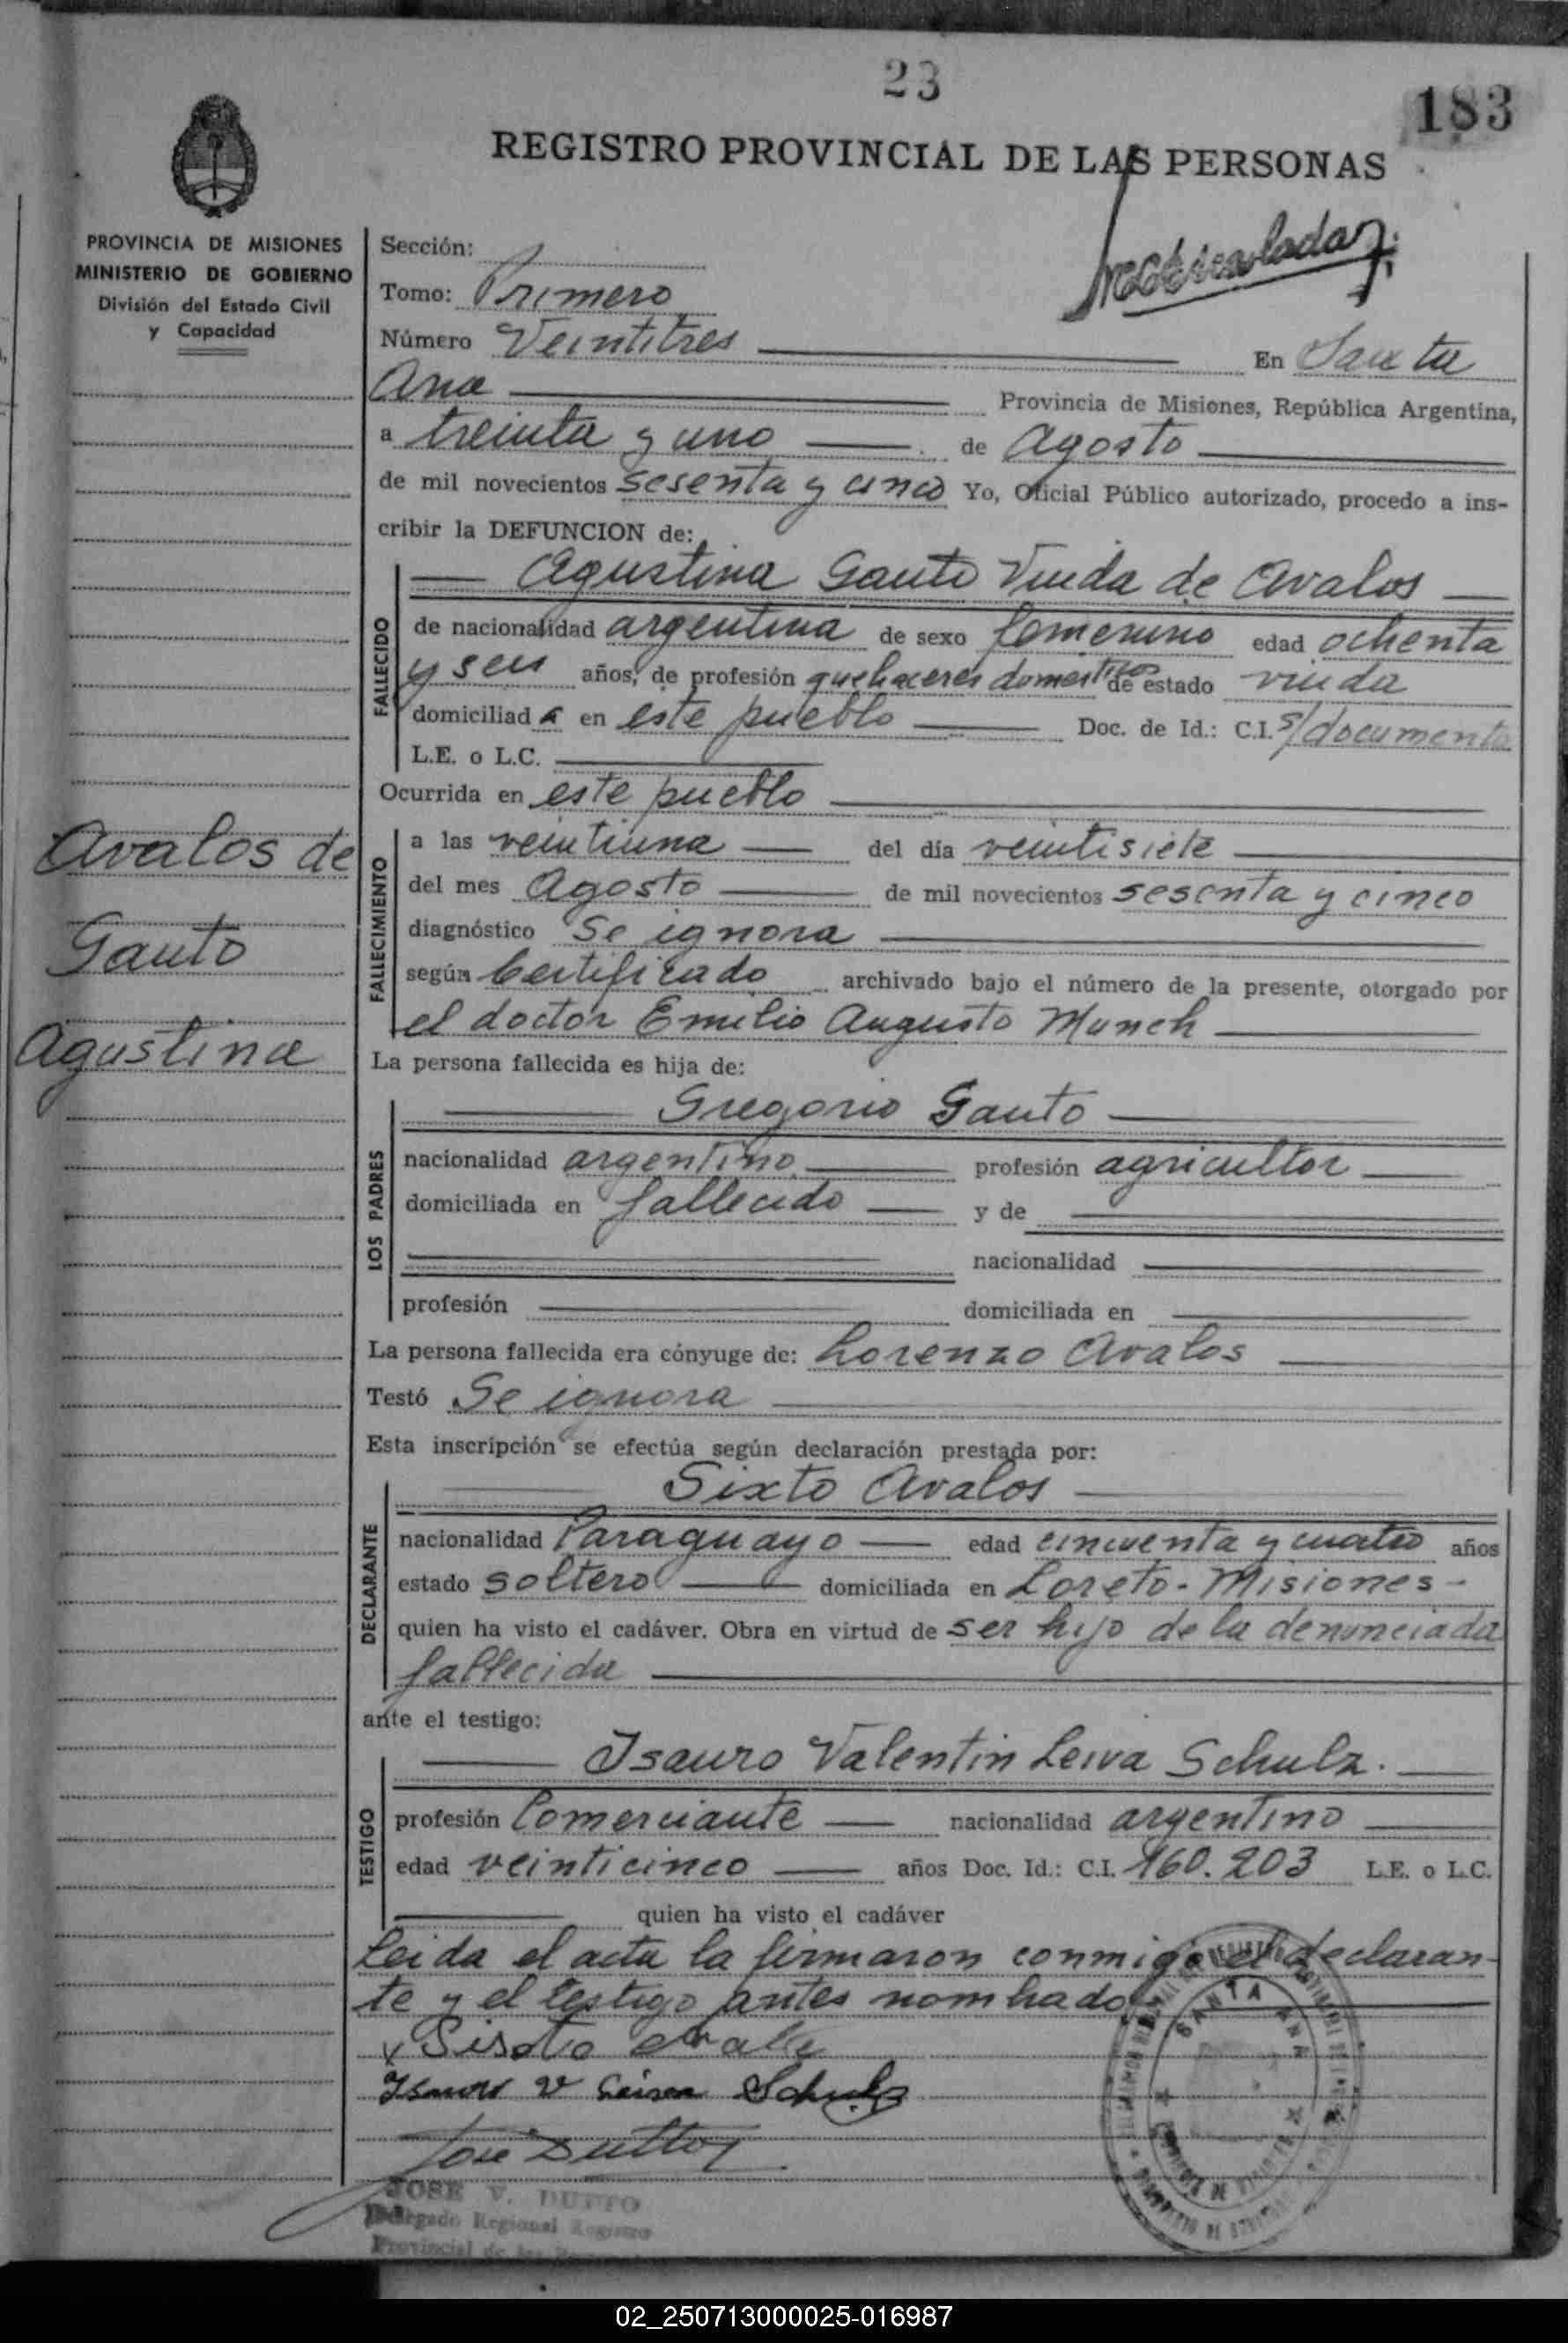 23
183
REGISTRO PROVINCIAL DE LAS PERSONAS
PROVINCIA DE MISIONES
MINISTERIO DE GOBIERNO
División del Estado Civil
y Capacidad
Avalos de
Gauto
Agustina
Sección:
Tomo: Primero
Número Veintitres En Santa
Ana Provincia de Misiones, República Argentina,
a treinta y uno de Agosto
de mil novecientos sesenta y cinco Yo, Oficial Público autorizado, procedo a ins-
cribir la DEFUNCION de:
FALLECIDO
Agustina Gauto Viuda de Avalos
de nacionalidad argentina de sexo femenino edad ochenta
y seis años, de profesión quehaceres domesticos de estado viuda
domiciliad a en este pueblo Doc. de Id.: C.I. s/documento
L.E. o L.C.
Ocurrida en este pueblo
FALLECIMIENTO
a las veintiuna del día veintisiete
del mes Agosto de mil novecientos sesenta y cinco
diagnóstico Se ignora
según Certificado archivado bajo el número de la presente, otorgado por
el doctor Emilio Augusto Munch
La persona fallecida es hija de:
LOS PADRES
Gregorio Gauto
nacionalidad argentino profesión agricultor
domiciliada en fallecido y de
nacionalidad
profesión domiciliada en
La persona fallecida era cónyuge de: Lorenzo Avalos
Testó Se ignora
Esta inscripción se efectúa según declaración prestada por:
DECLARANTE
Sixto Avalos
nacionalidad Paraguayo edad cincuenta y cuatro años
estado soltero domiciliada en Loreto - Misiones -
quien ha visto el cadáver. Obra en virtud de ser hijo de la denunciada
fallecida
ante el testigo:
TESTIGO
Isauro Valentin Leiva Schulz.
profesión Comerciante nacionalidad argentino
edad veinticinco años Doc. Id.: C.I. 160.203 L.E. o L.C.
quien ha visto el cadáver
Leida el acta la firmaron conmigo el declaran-
te y el testigo antes nombrado
Isauro V Leiva Schulz
José Dutto
JOSE V. DUTTO
Delegado Regional Registro
Provincial de las
SANTA ANA
02_250713000025-016987